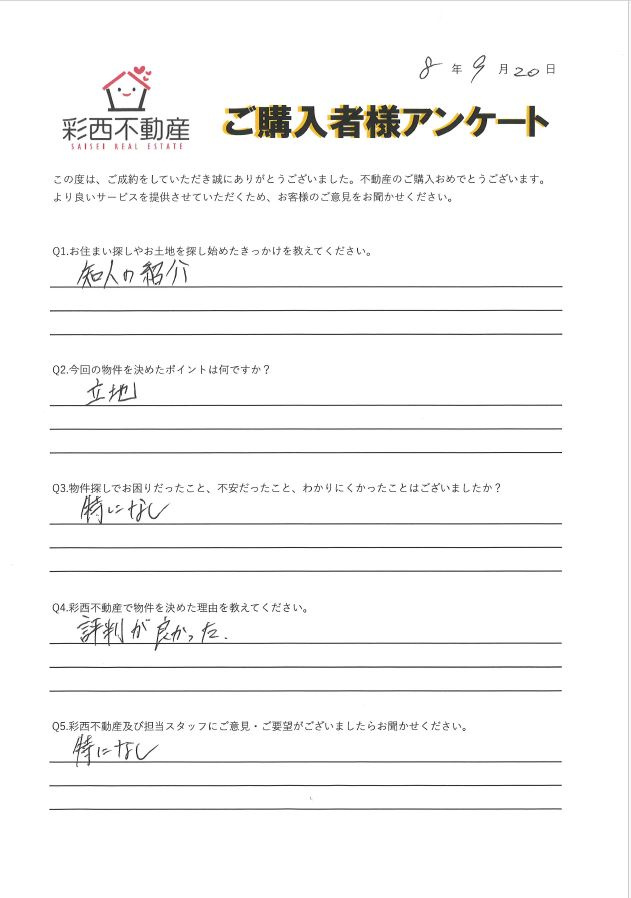 8年9月20日
彩西不動産
SAISEI REAL ESTATE
ご購入者様アンケート
この度は、ご成約をしていただき誠にありがとうございました。不動産のご購入おめでとうございます。
より良いサービスを提供させていただくため、お客様のご意見をお聞かせください。
Q1.お住まい探しやお土地を探し始めたきっかけを教えてください。
知人の紹介
Q2.今回の物件を決めたポイントは何ですか？
立地
Q3.物件探しでお困りだったこと、不安だったこと、わかりにくかったことはございましたか？
特になし
Q4.彩西不動産で物件を決めた理由を教えてください。
評判が良かった.
Q5.彩西不動産及び担当スタッフにご意見・ご要望がございましたらお聞かせください。
特になし